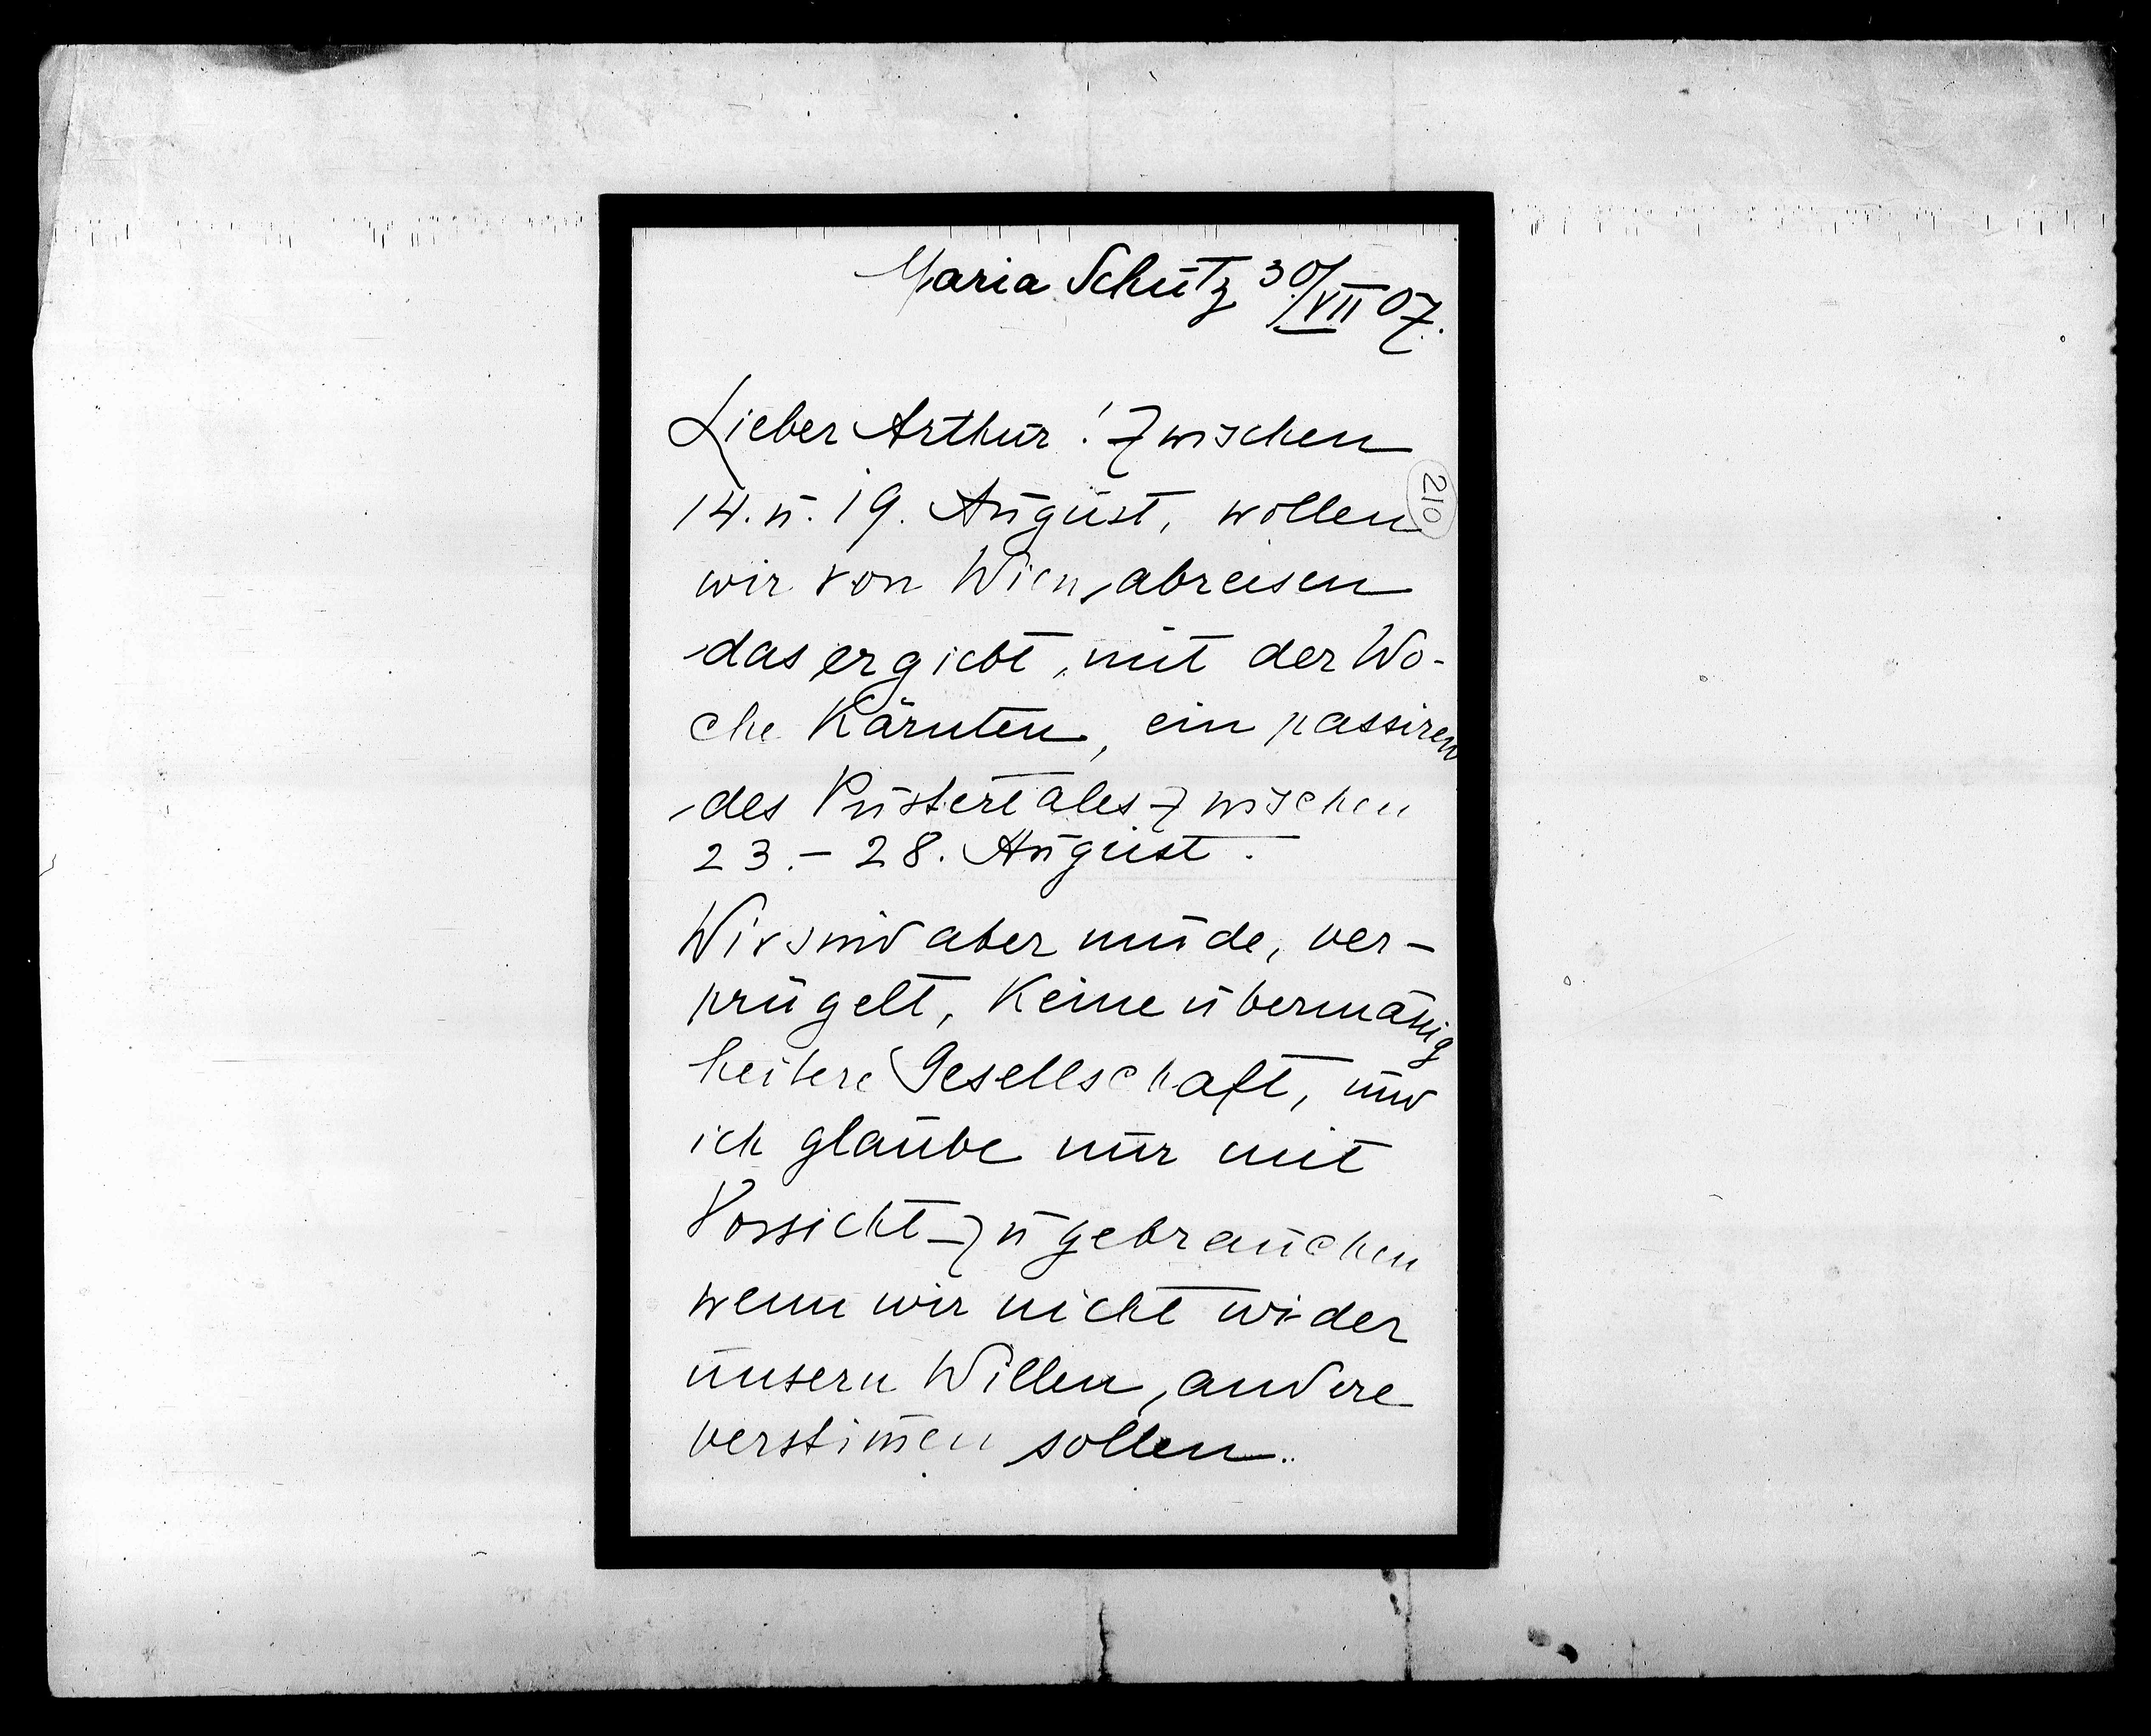 Maria Schutz 30/VII 07.
Lieber Arthur! Zwischen
14. u. 19. August, wollen
210
wir von Wien, abreisen
das ergiebt, mit der Wo-
che Kärnten, ein passiren
des Pustertales zwischen
23.- 28. August.
Wir sind aber müde, ver-
prügelt, keine übermäßig
heitere Gesellschaft, und
ich glaube nur mit
Vorsicht zu gebrauchen
wenn wir nicht wider
unsern Willen, andere
verstim̄en sollen.